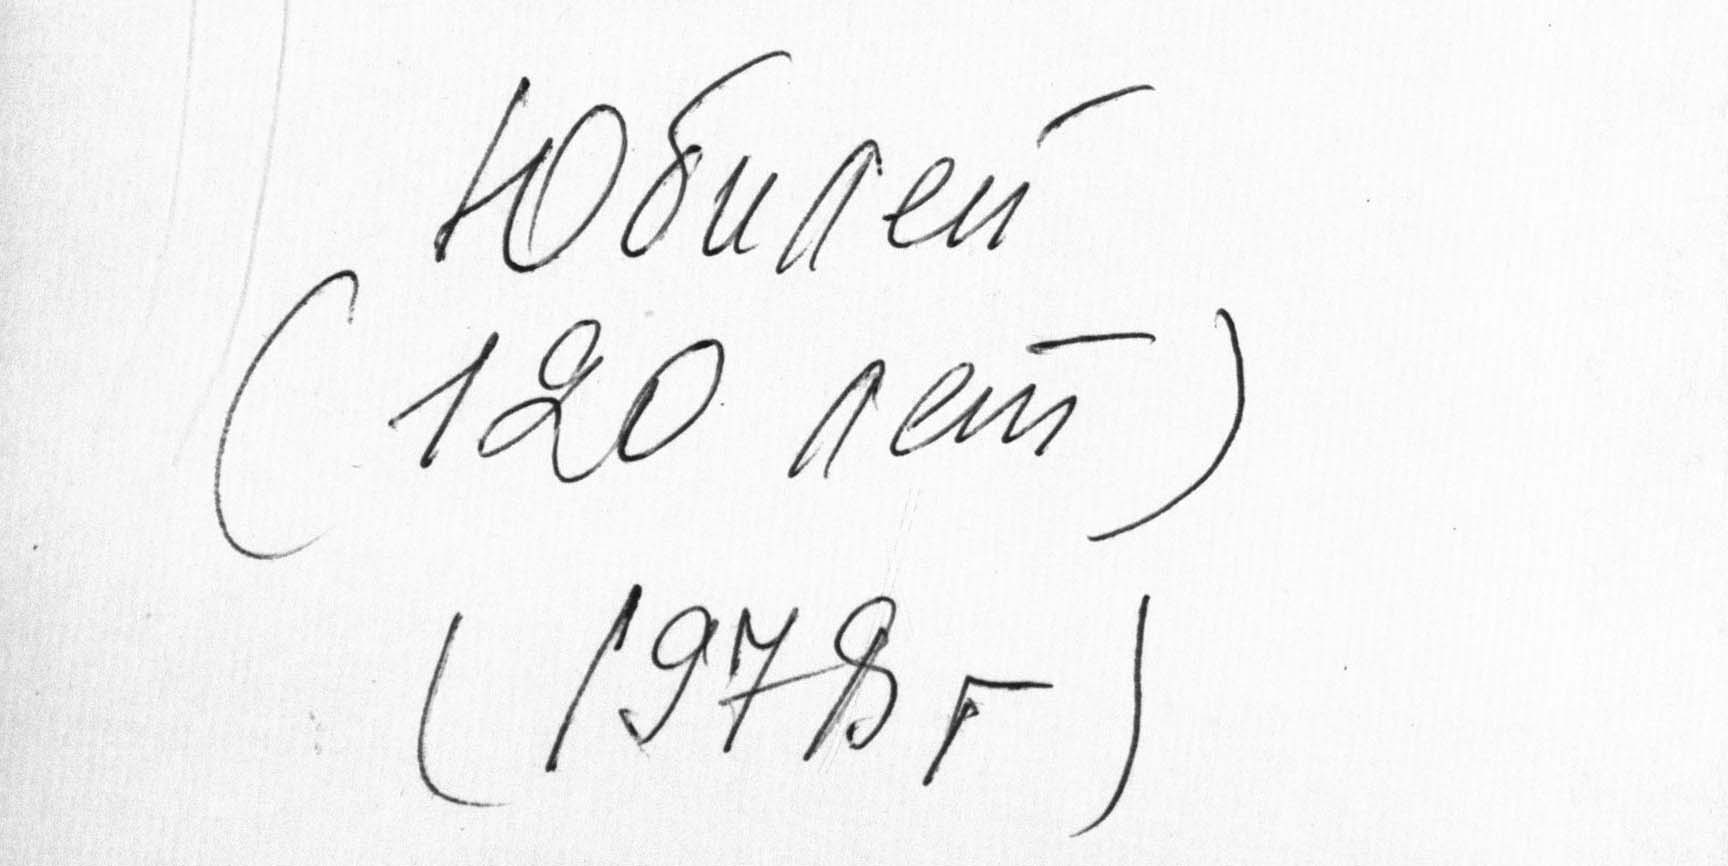 Юбилей
(120 лет)
(1978 г)